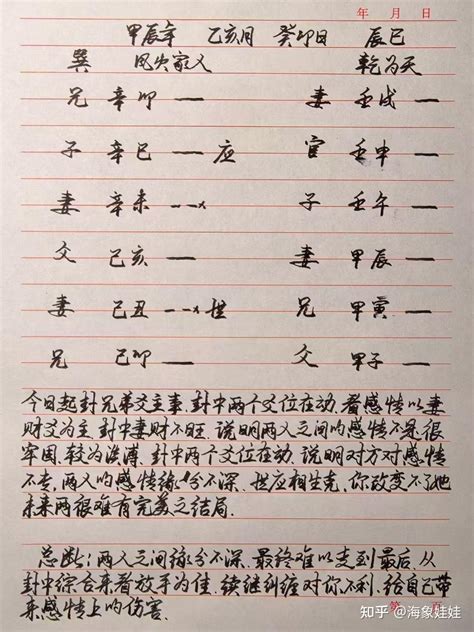 年 月 日
甲辰年 乙亥月 癸卯日 辰巳
巽 风火家人 乾为天
兄 辛卯 妻 壬戌
子 辛巳 应 官 壬申
妻 辛未 × 子 壬午
父 己亥 妻 甲辰
妻 己丑 × 世 兄 甲寅
兄 己卯 父 甲子
今日起卦兄弟爻主事,卦中两个爻位在动.看感情以妻
财爻为主.卦中妻财不旺.说明两人之间的感情不是很
牢固.较为浅薄.卦中两个爻位在动.说明对方对感情
不专.两人的感情缘分不深.世应相生克.你改变不了她
未来两很难有完美之结局.
总断:两人之间缘分不深.最终难以走到最后.从
卦中综合来看放手为佳.续继纠缠对你不利.给自己带
来感情上的伤害.
第 页
知乎 @海象娃娃